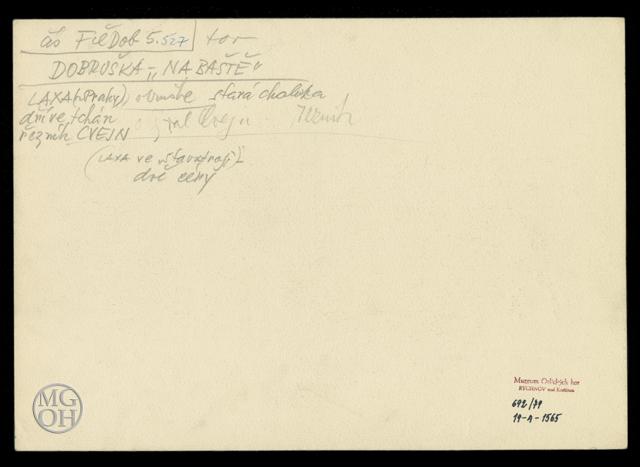 čs FilDob 5.527 tor
DOBRUŠKA - „NA BAŠTĚ"
LAXA (v Praze), stará chalupa
dříve, tchán
řezník CVEJN řezník
(LAXA ve
dvě ceny
Museum Orlických hor
RYCHNOV nad Kněžnou
692/79
19-A-1565
MG
OH